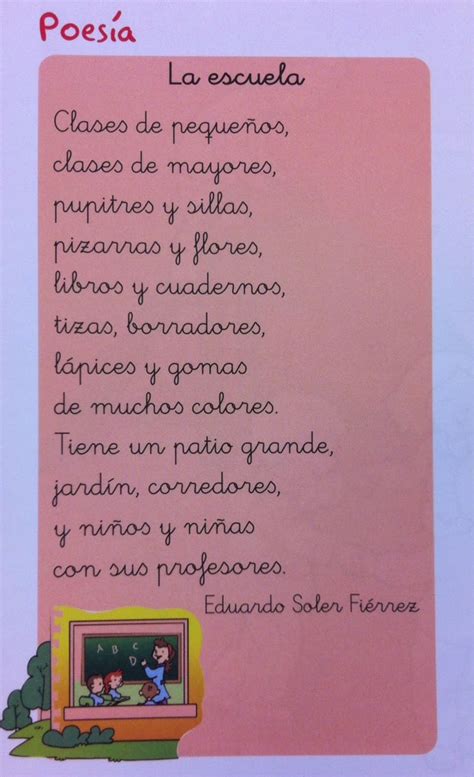 Poesía
La escuela
Clases de pequeños,
clases de mayores,
pupitres y sillas,
pizarras y flores,
libros y cuadernos,
tizas, borradores,
lápices y gomas
de muchos colores.
Tiene un patio grande,
jardín, corredores,
y niños y niñas
con sus profesores.
Eduardo Soler Fiérrez
A B C
D